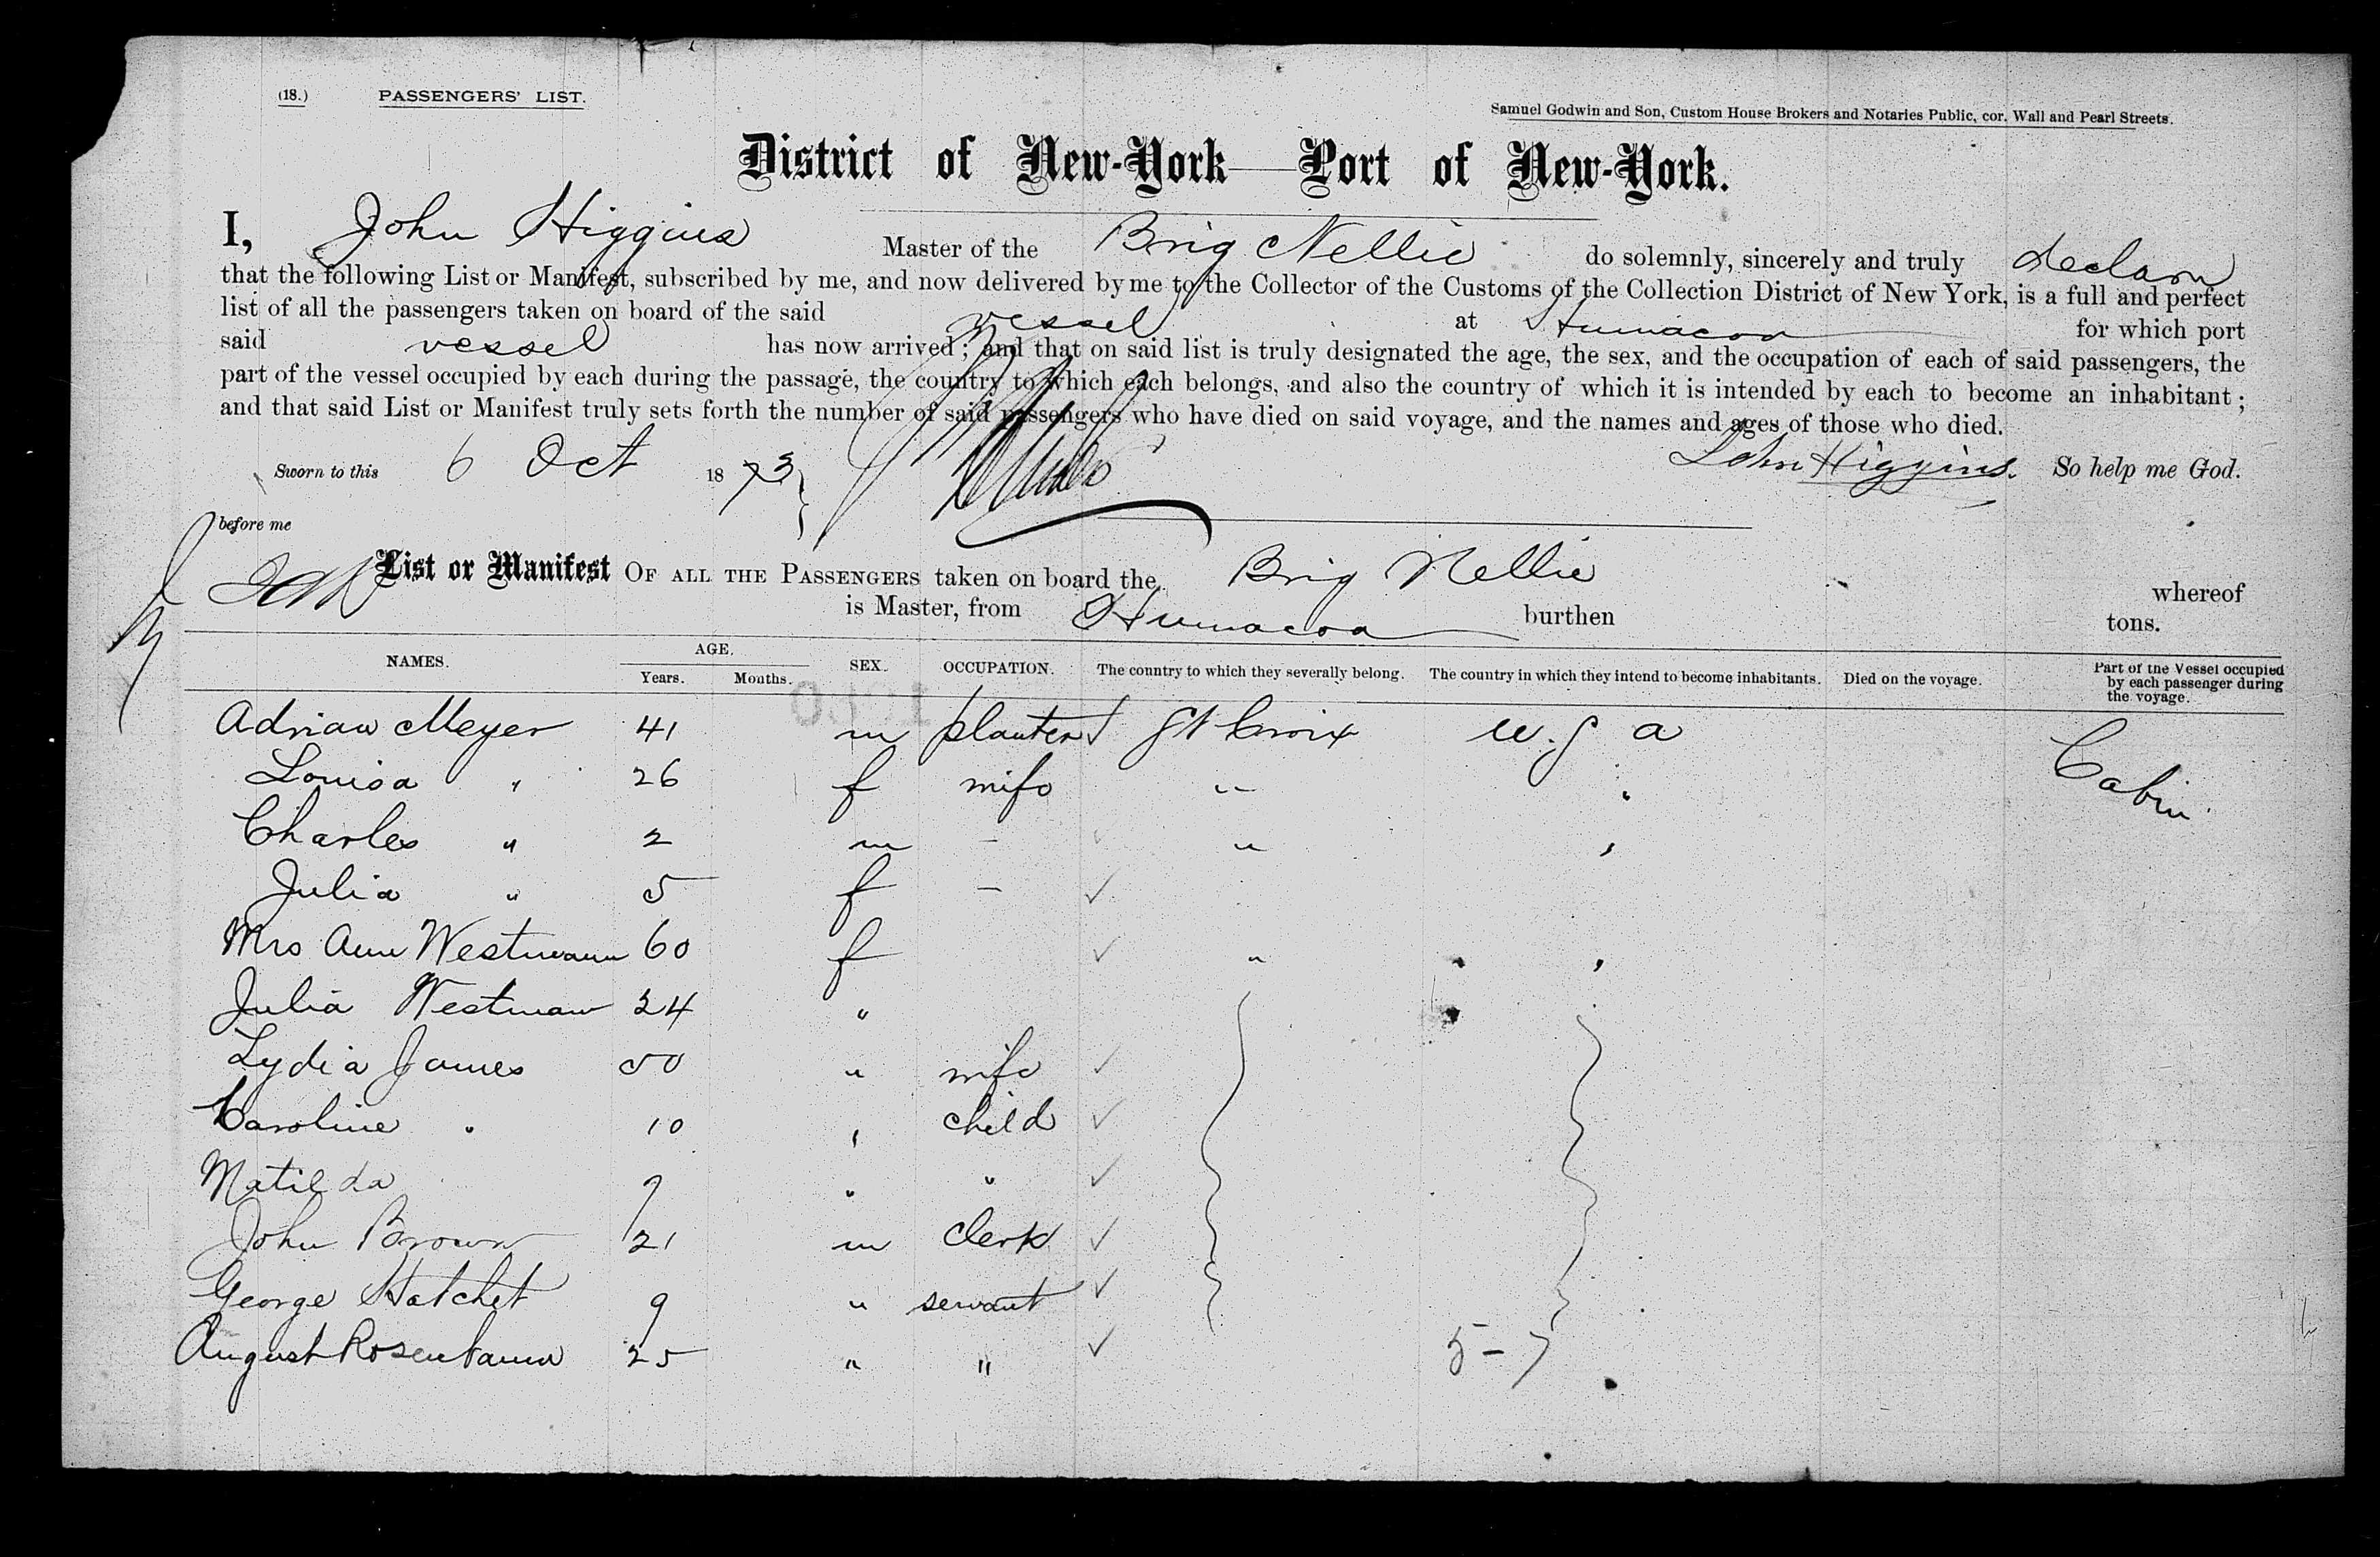 (18.) PASSENGERS' LIST.
Samuel Godwin and Son, Custom House Brokers and Notaries Public, cor. Wall and Pearl Streets.
District of New-York—Port of New-York.
I, John Higgins Master of the Brig Nellie do solemnly, sincerely and truly declare
that the following List or Manifest, subscribed by me, and now delivered by me to the Collector of the Customs of the Collection District of New York, is a full and perfect
list of all the passengers taken on board of the said vessel at Humacoa for which port
said vessel has now arrived; and that on said list is truly designated the age, the sex, and the occupation of each of said passengers, the
part of the vessel occupied by each during the passage, the country to which each belongs, and also the country of which it is intended by each to become an inhabitant;
and that said List or Manifest truly sets forth the number of said passengers who have died on said voyage, and the names and ages of those who died.
Sworn to this 6 Oct 1873 John Higgins. So help me God.
before me
List or Manifest OF ALL THE PASSENGERS taken on board the Brig Nellie whereof
is Master, from Humacoa burthen tons.
NAMES. AGE. Years. Months. SEX. OCCUPATION. The country to which they severally belong. The country in which they intend to become inhabitants. Died on the voyage. Part of the Vessel occupied by each passenger during the voyage.
Adrian Meyer 41 m planter St Croix U.S a Cabin
Louisa " 26 f wife " "
Charles " 2 m - " "
Julia " 5 f -
Mrs Ann Westmann 60 f " "
Julia Westman 24 "
Lydia James 50 " wife
Caroline " 10 " child
Matilda 7 " "
John Brown 21 m clerk
George Hatchet 9 " servant
August Rosenbaum 25 " "
5-7